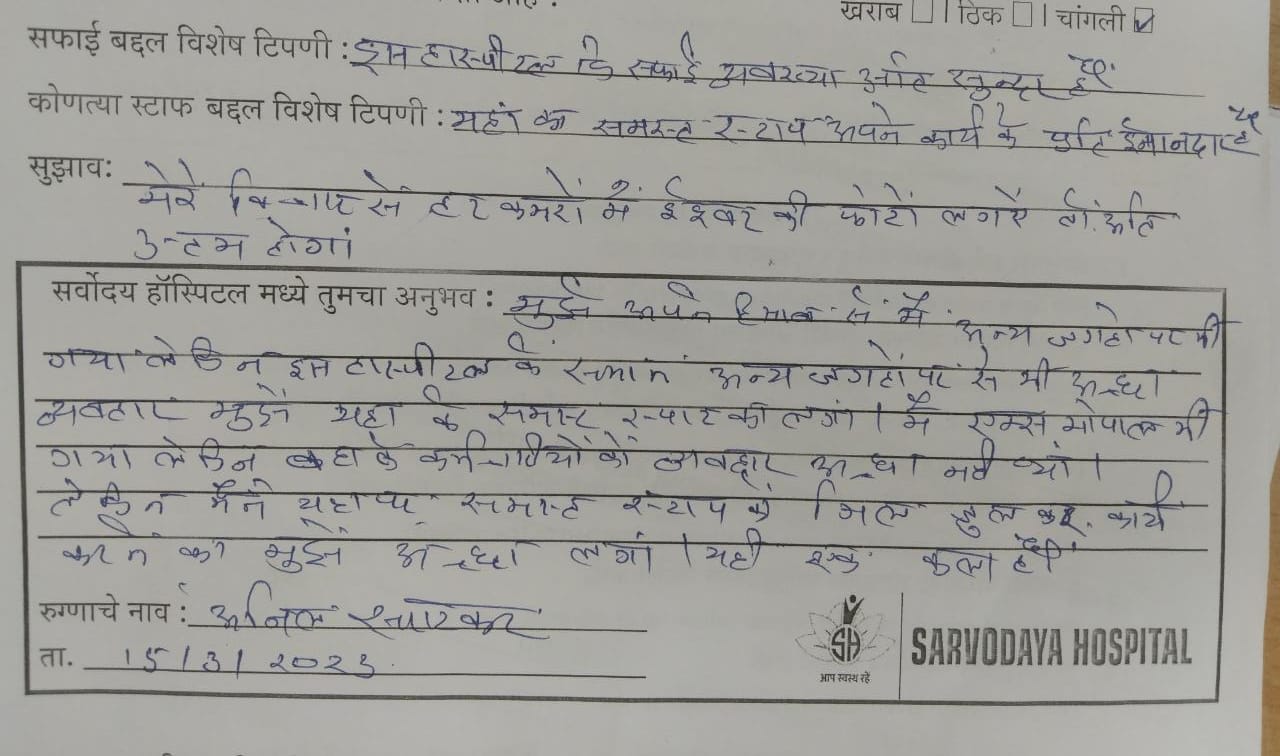 खराब □ | ठिक □ | चांगली ☑
सफाई बद्दल विशेष टिपणी : इस हास्पीटल कि सफाई व्यवस्था अति सुन्दर है
कोणत्या स्टाफ बद्दल विशेष टिपणी : यहां का समस्त स्टाप अपने कार्य के प्रति ईमानदार है
सुझाव: मेरे विचार से हर कमरों में ईश्वर की फोटों लगाऐ तों. अति
उत्तम होगां
सर्वोदय हॉस्पिटल मध्ये तुमचा अनुभव : मुझे अपने हिसाब से मैं अन्य जगहो पर भी
गया लेकिन इस हास्पीटल के समान अन्य जगहों पर से भी अच्छा
व्यवहार मुझे यहा के समस्त स्टाप का लगां । मैं एम्स भोपाल भी
गया लेकिन वहा के कर्मचारियों कों व्यवहार अच्छा नही थां ।
लेकिन मैने यहा पर समस्त स्टाप के मिल जुल कर. कार्य
करने का मुझे अच्छा लगां । यही एक कला है।
रुग्णाचे नाव : अनिल
ता. 15/3/2023
SH
आप स्वस्थ रहें
SARVODAYA HOSPITAL